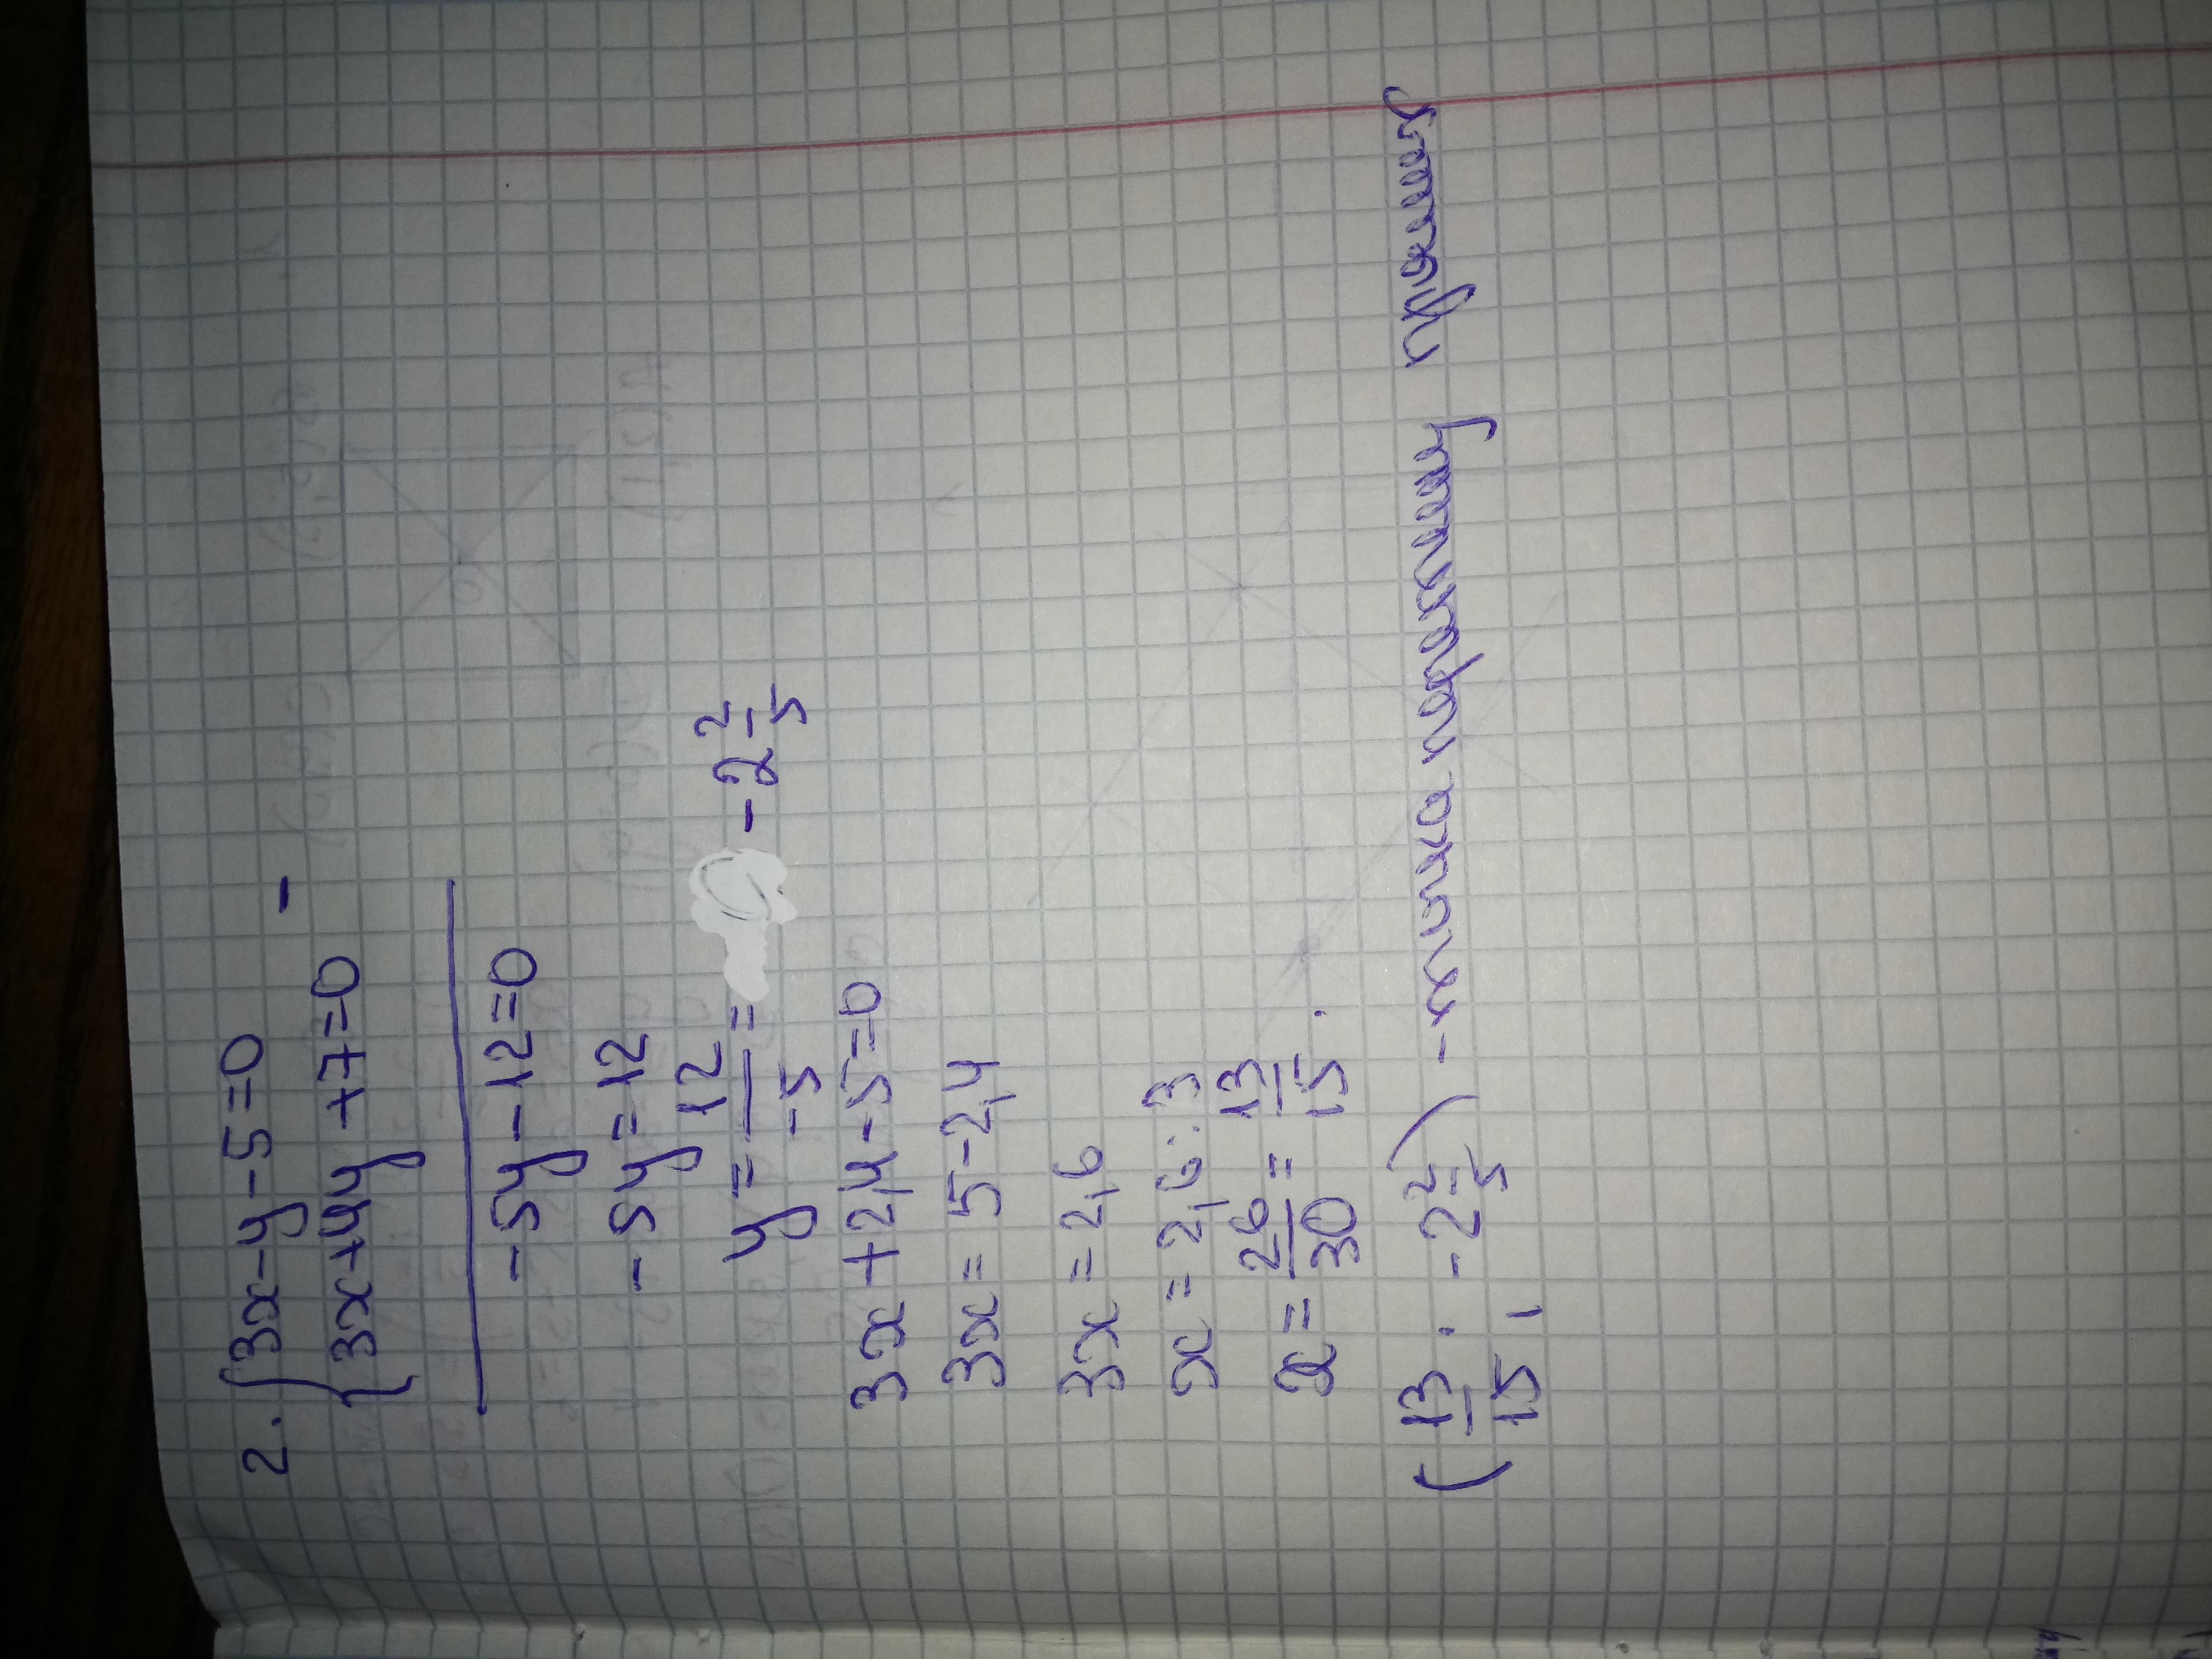 2. { 3x-y-5=0
{ 3x+4y+7=0 -
-5y-12=0
-5y=12
y= 12/-5 = -2 2/5
3x+2,4-5=0
3x=5-2,4
3x=2,6
x=2,6:3
x= 26/30 = 13/15.
(13/15; -2 2/5) - точка